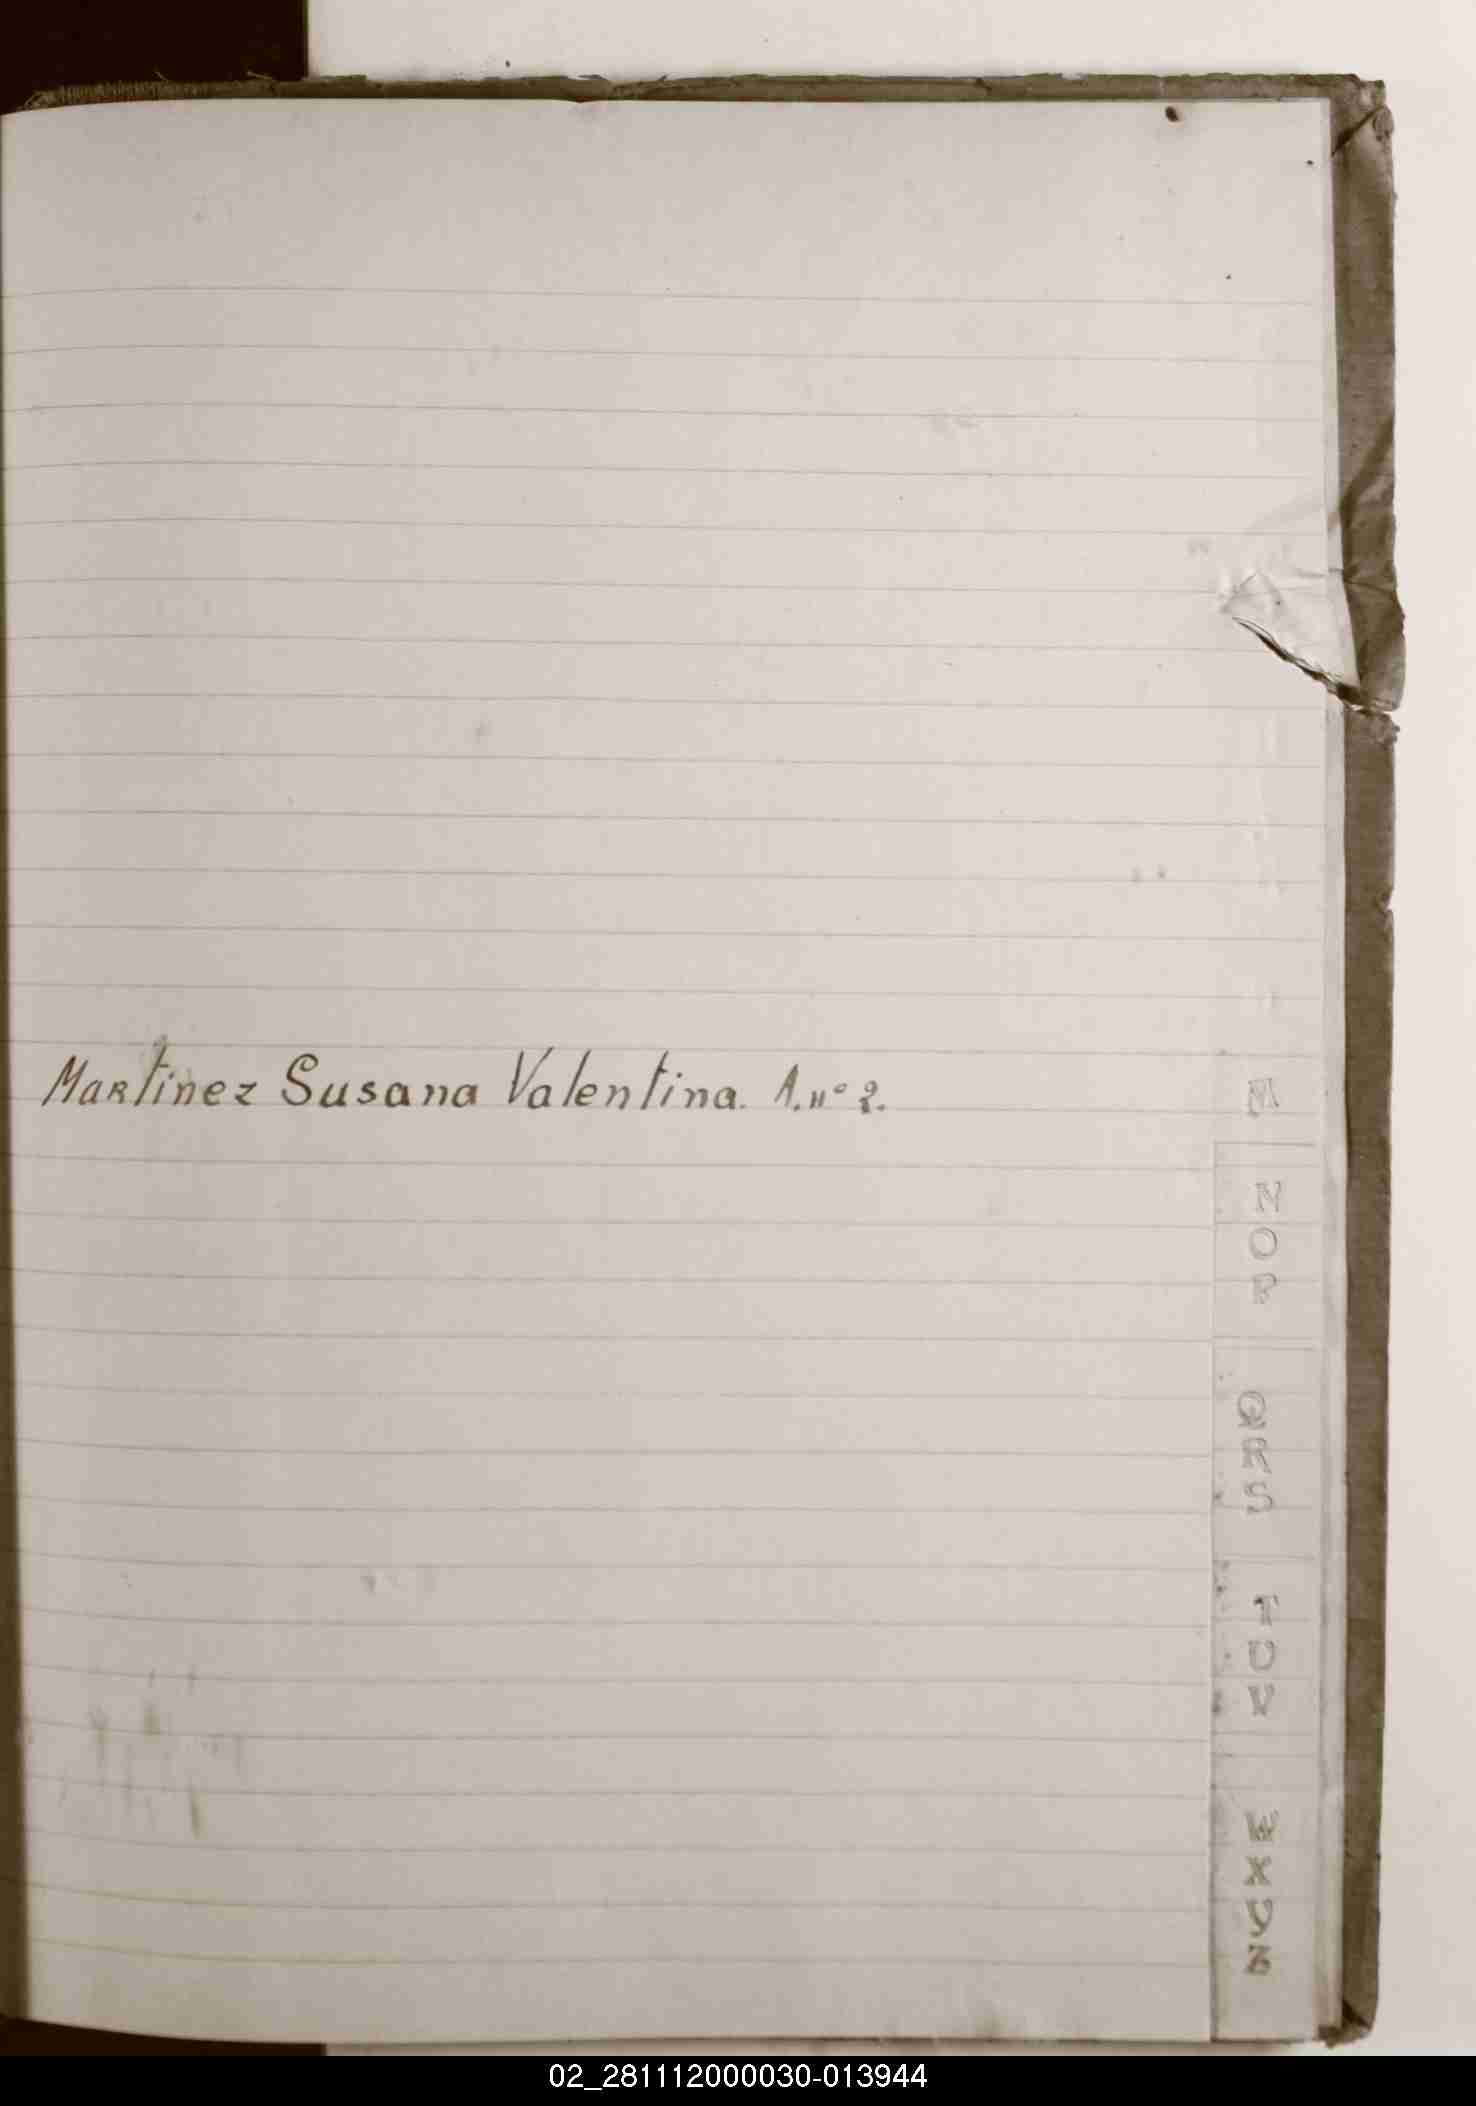 Martinez Susana Valentina. A. nº 2.
M
N
O
P
Q
R
S
T
U
V
W
X
Y
Z
02_281112000030-013944